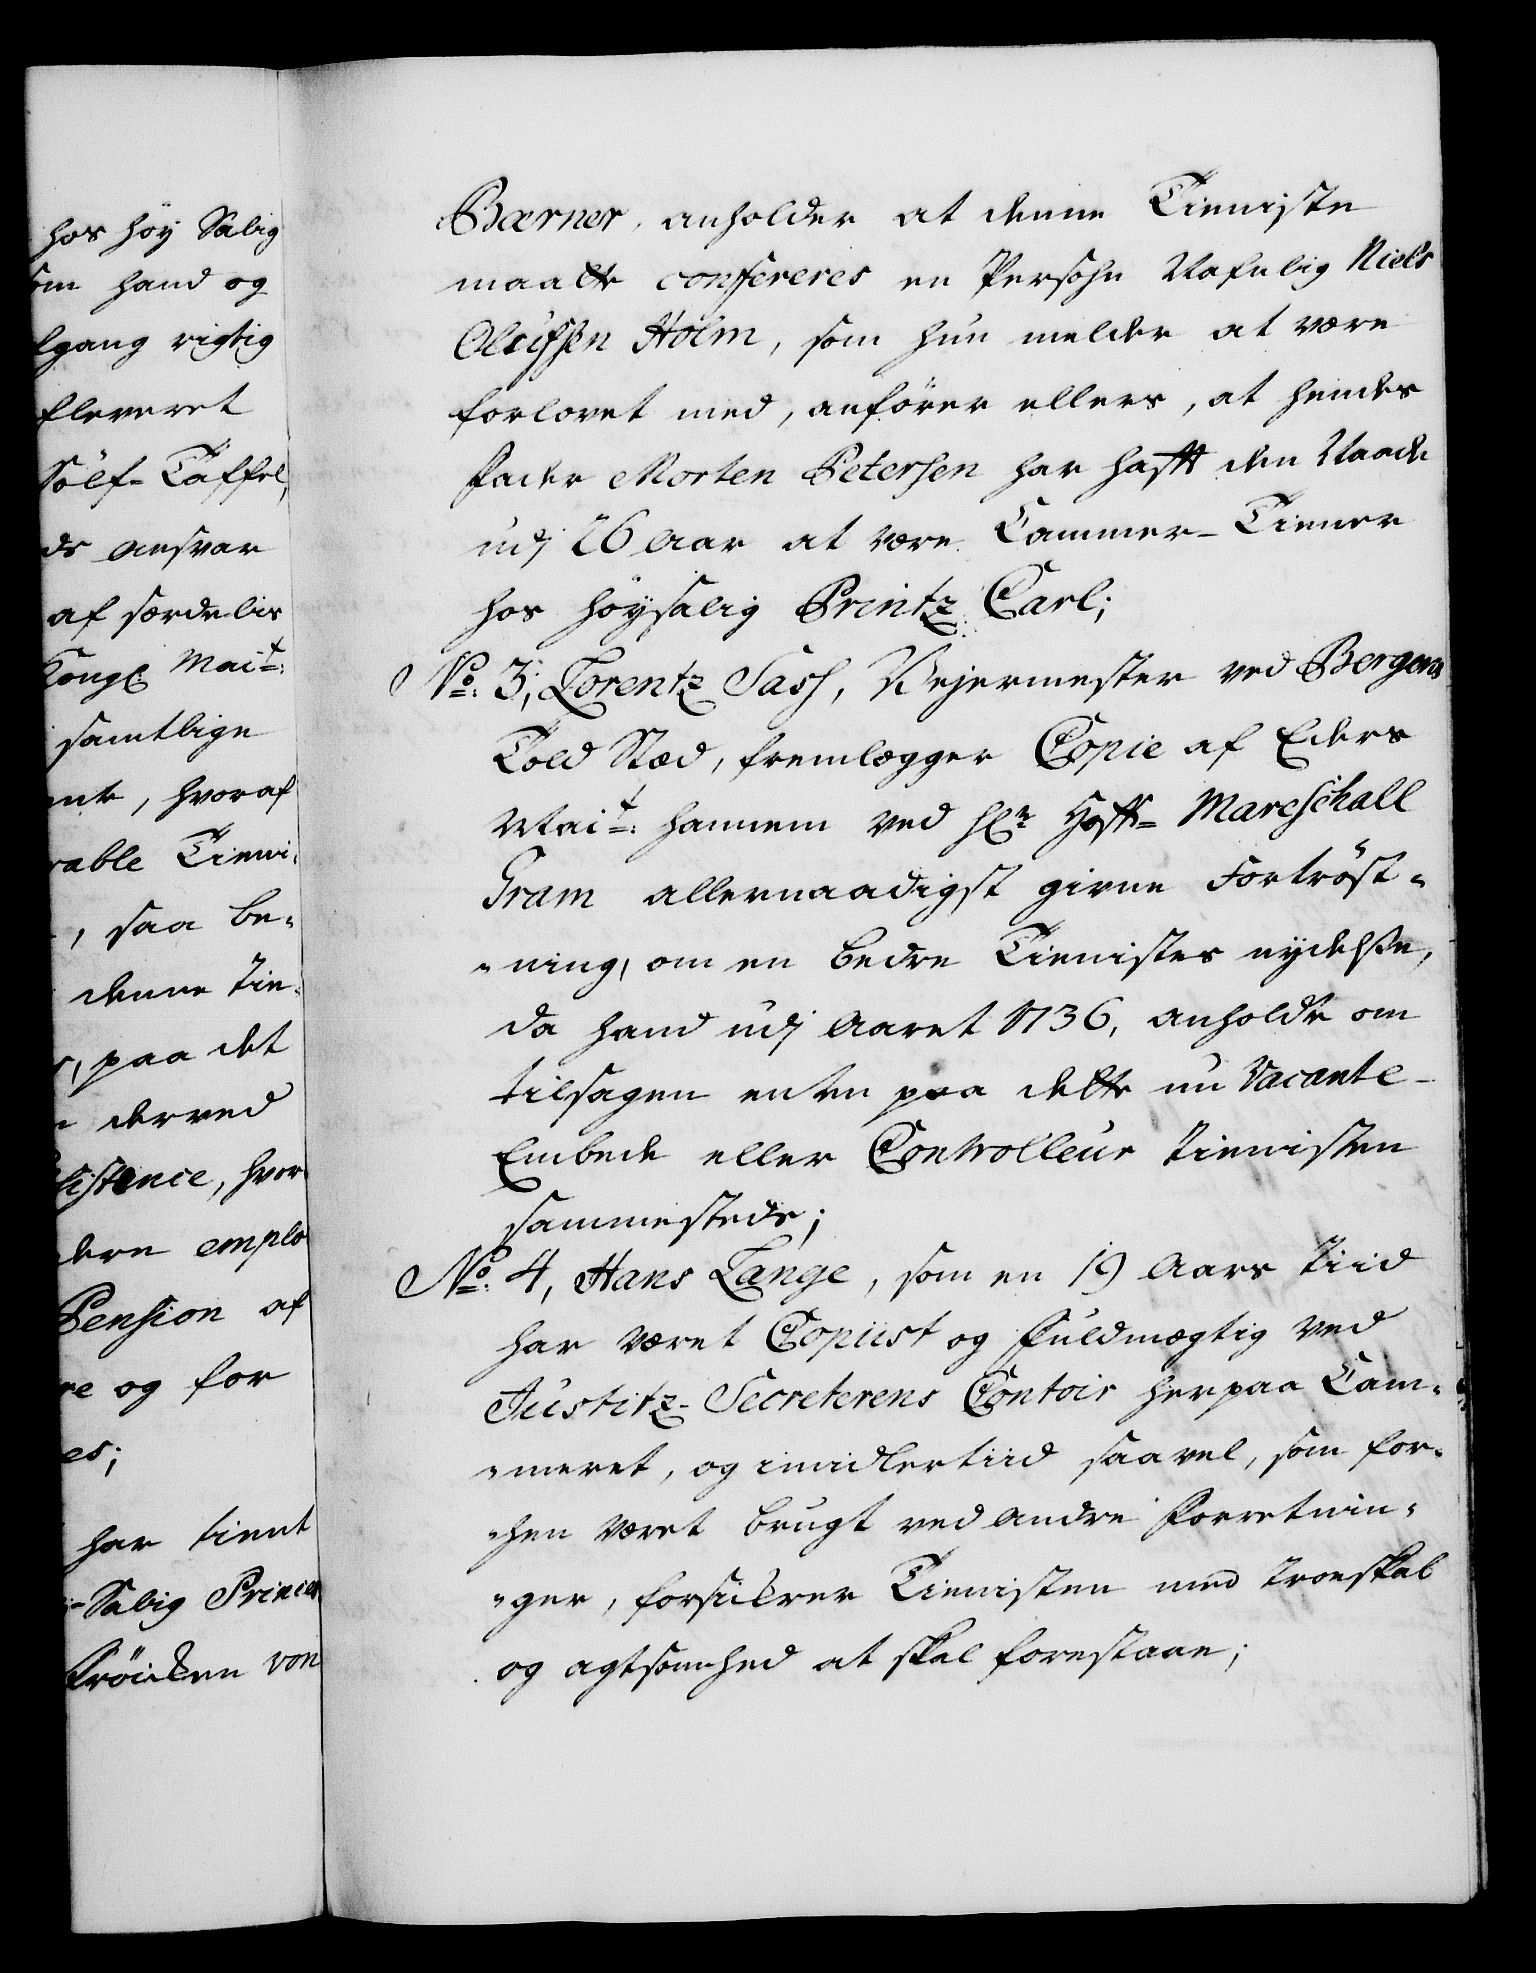 hos höy Salig
som hand og
lgang rigtig
fleveret
Sölf- Taffel,
ds ansvar
af særdelis
Kongl: Mait:
samtlige
ente, hvoraf
rable Tieni-
, saa be-
denne Tie-
, paa det
derved
sistence, hvor
dere emplo
Pension af
re og for
es;
har tient
-Salig Princes
Fröicken von
Bærner, anholder at denne Tieniste
maatte confereres en Persohn Nafnlig Niels
Oluffsen Holm, som hun melder at være
forlovet med, anförer ellers, at hendes
Fader Morten Petersen har hafft den Naade
udj 26 Aar at være Cammer-Tiener
hos höysalig Printz Carl;
No: 3, Lorentz Sass, Vejermester ved Bergens
Told Stæd, fremlægger Copie af Eders
Mait: hannem ved Hr Hoff- Mareschall
Gram allernaadigst givne Fortröst-
-ning, om en bedre Tienistes nydelse,
da hand udj Aaret 1736, anholdte om
tilsagen enten paa dette nu Vacante
Embede eller Controlleur Tienisten
sammesteds;
No: 4, Hans Lange, som en 19 Aars Tiid
har været Copiist og Fuldmægtig ved
Justitz-Secreterens Contoir her paa Cam-
-meret, og imidlertiid saavel, som for-
-hen været brugt ved andre Forretnin-
-ger, forsickrer Tienisten med troeskab
og agtsomhed at skal forestaae;